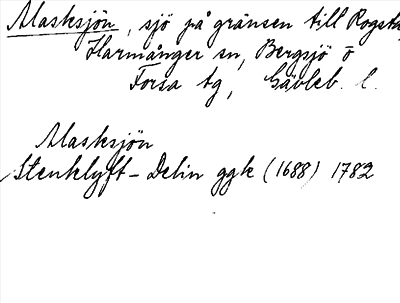 Alasksjön, sjö på gränsen till Rogsta,
Harmånger sn, Bergsjö o
Forsa tg, Gävleb. l.
Alasksjön
Stenklyft - Delin ggk (1688) 1782